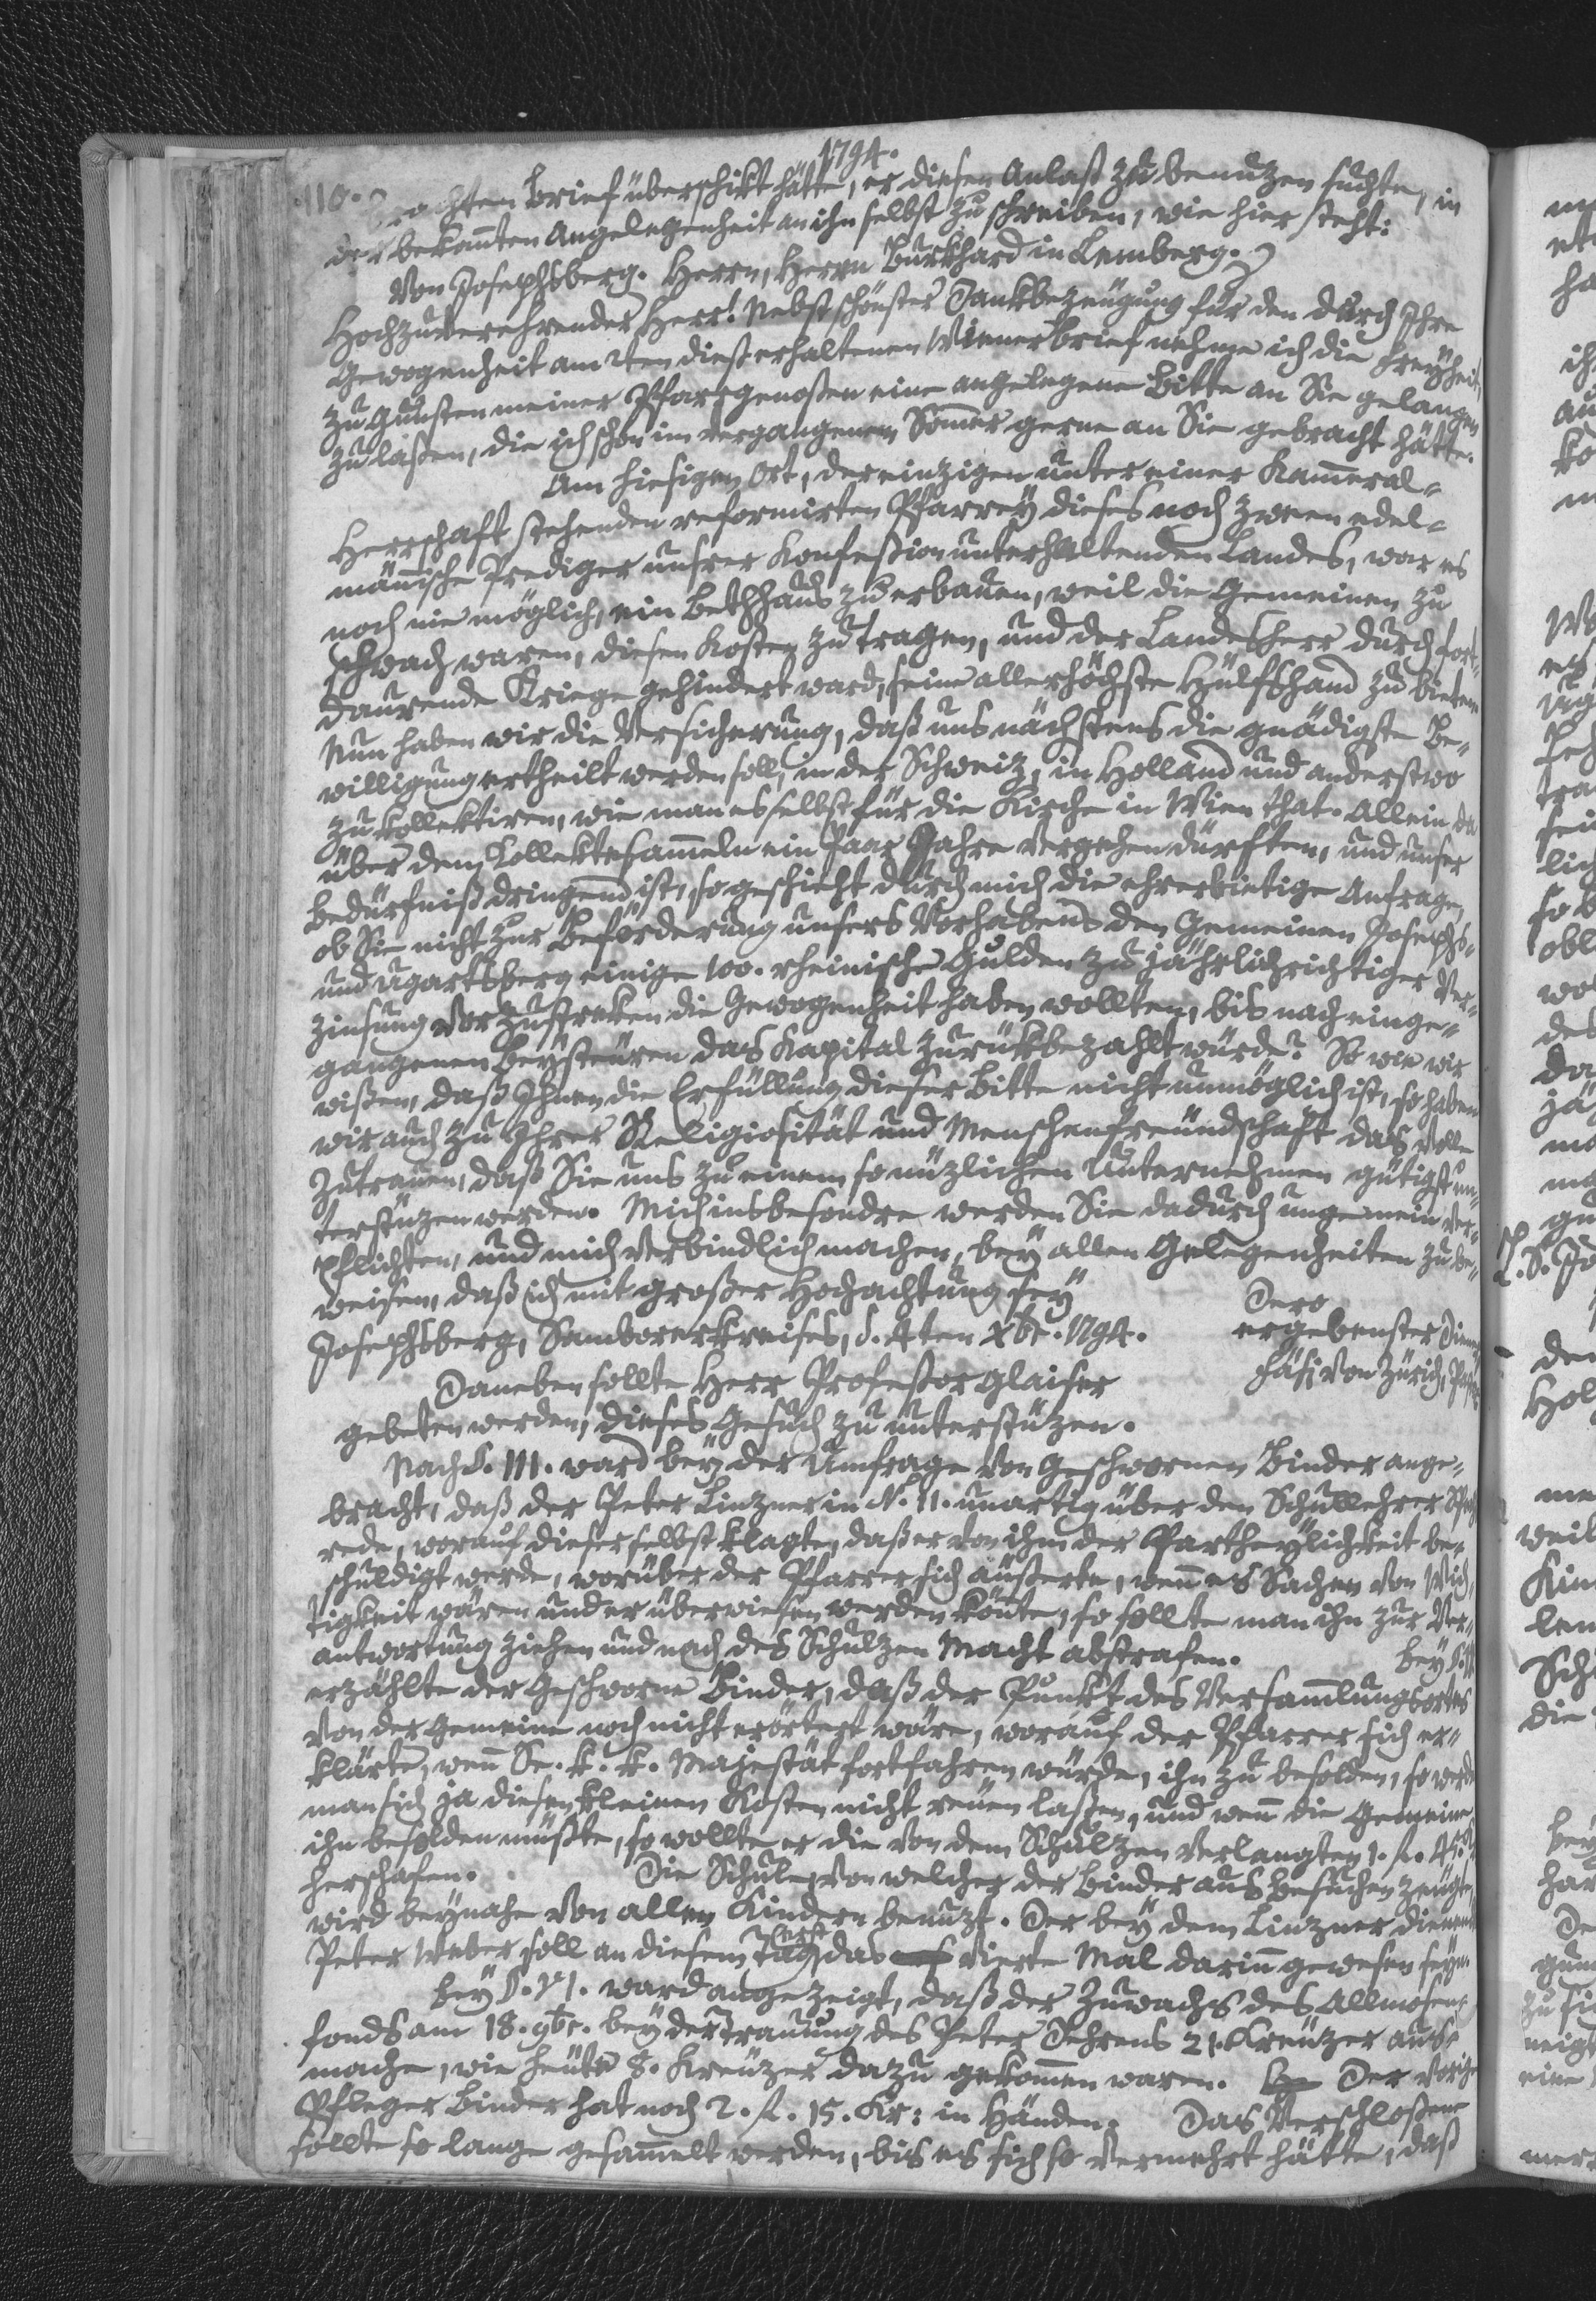 1794.
110.
brachten Brief überschikt hätte, er diesen Anlaß zu benuzen suchte, in
der bekanten Angelegenheit an ihn selbst zu schreiben, wie hier steht:
Von Josephsberg. Herrn, Herrn Burkhard in Lemberg.
Hochzuverehrender Herr! Nebst schönster Dankbezeugung für den durch Ihre
Gewogenheit am 2ten dieß erhaltenen Wienerbrief nehme ich die Freyheit,
zu Gunsten meiner Pfarrgenoßen eine angelegene Bitte an Sie gelangen
zu laßen, die ich schon im vergangenen Sommer gerne an Sie gebracht hätte.
Am hiesigen Ort, der einzigen unter einer Kameral-
Herrschaft stehenden reformirten Pfarrey dieses noch zween edel-
mänische Prediger unsrer Konfeßion unterhaltenden Landes, war es
noch nie möglich, ein Bethhaus zu erbauen, weil die Gemeinen zu
schwach waren, diesen Kosten zu tragen, und der Landesherr durch fort-
daurende Kriege gehindert ward, seine allerhöchste Hülfshand zu bieten.
Nun haben wir die Versicherung, daß uns nächstens die gnädigste Be-
willigung ertheilt werden soll, in der Schweiz, in Holland und anderstwo
zu kollektiren, wie man es selbst für die Kirche in Wien that. Allein da
über dem Collektesameln ein Paar Jahre vergehen dürften, und unser
Bedürfniß dringend ist, so geschieht durch mich die ehrerbietige Anfrage,
ob Sie nicht zur Beförderung unsers Vorhabens den Gemeinen Josephs-
und Ugartsberg einige 100. rheinische Gulden zu jährlich richtiger Ver-
zinsung vorzustreken die Gewogenheit haben wollten, bis nach einge-
gangenen Beysteuren das Kapital zurükbezahlt würde? So wie wir
wißen, daß Ihnen die Erfüllung dieser Bitte nicht unmöglich ist, so haben
wir auch zu Ihrer Religiosität und Menschenfreundschaft das volle
Zutrauen, daß Sie uns zu einem so nüzlichen Unternehmen gütigst un-
terstüzen werden. Mich insbesondre werden Sie dadurch ungemein ver-
pflichten, und mich verbindlich machen, bey allen Gelegenheiten zu be-
weisen, daß ich mit großer Hochachtung sey Dero
Josephsberg, Samborerkreises, d. 4ten Xbr. 1794. ergebenster Diener
Fäsi von Zürich, Pfarrer
Daneben sollte Herr Profeßor Glaiser
gebeten werden, dieses Gesuch zu unterstüzen.
Nach §. III. ward bey der Umfrage von Geschwornen Binder ange-
bracht, daß der Peter Linzner in N. 11. unartig über den Schullehrer
rede, worauf dieser selbst klagte, daß er von ihm der Partheylichkeit be-
schuldigt werde, worüber der Pfarrer sich äußerte, wenn es Sachen von Wich-
tigkeit wären und er überwiesen werden könte, so sollte man ihn zur Ver-
antwortung ziehen und nach des Schulzen Macht abstrafen. Bey
erzählte der Geschworne Binder, daß der Punkt des Versamlungsortes
von der Gemeine noch nicht erörtert wäre, worauf der Pfarrer sich er-
klärte, wenn Se. k. k. Majestät fortfahren würde, ihn zu besolden, so werde
man sich ja diesen kleinen Kosten nicht reuen laßen, und wenn die Gemeine
ihn besolden müßte, so wollte er die von dem Schulzen verlangten 1. fl. 45.
herschafen. Die Schule, von welcher der Binder aus Besuchen zeugte,
wird beynahe von allen Kindern benuzt. Der bey dem Linzner dienende
Peter Weber soll an diesem Tag erst das vierte Mal darinn gewesen seyn.
Bey §. VI. ward angezeigt, daß der Zuwachs des Allmosen-
fonds am 18. 9br. bey der Trauung des Peter Dehrens 21. Kreuzer aus-
mache, wie heute 8. Kreuzer dazu gekommen waren. Der vorige
Pfleger Binder hat noch 2. fl. 15. Kr: in Händen. Das Verschloßene
sollte so lange gesamelt werden, bis es sich so vermehrt hätte, daß